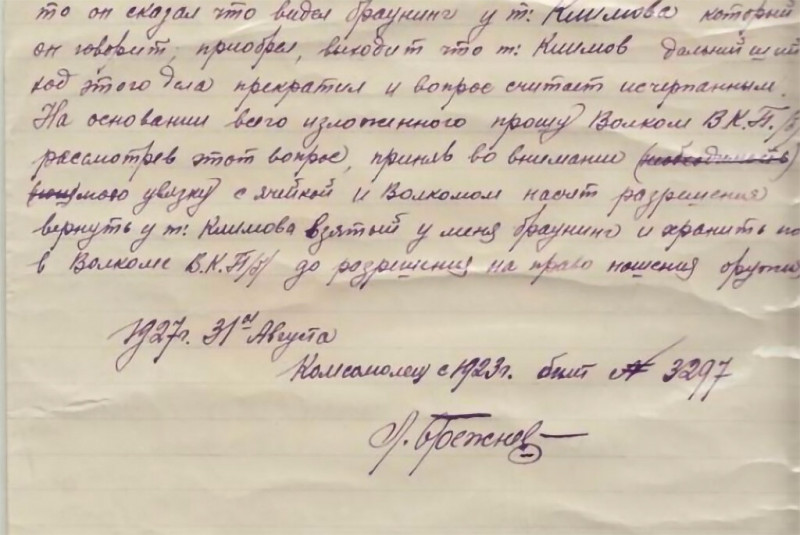 то он сказал что видел браунинг у т. Климова который
он говорит, приобрел, выходит что т. Климов дальнейший
ход этого дела прекратил и вопрос считает исчерпанным.
На основании всего изложенного прошу Волком В.К.П./б/
рассмотрев этот вопрос, приняв во внимание
мою увязку с ячейкой и Волкомом насчет разрешения
вернуть у т. Климова взятый у меня браунинг и хранить
в Волкоме В.К.П/б/ до разрешения на право ношения оружия
1927г. 31го Августа
Комсомолец с 1923г. билет № 3297
Л. Брежнев